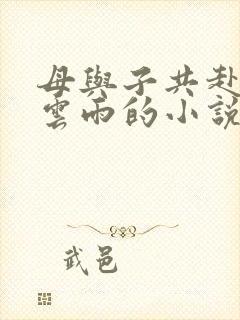 母與子共赴
雲雨的小說
武邑